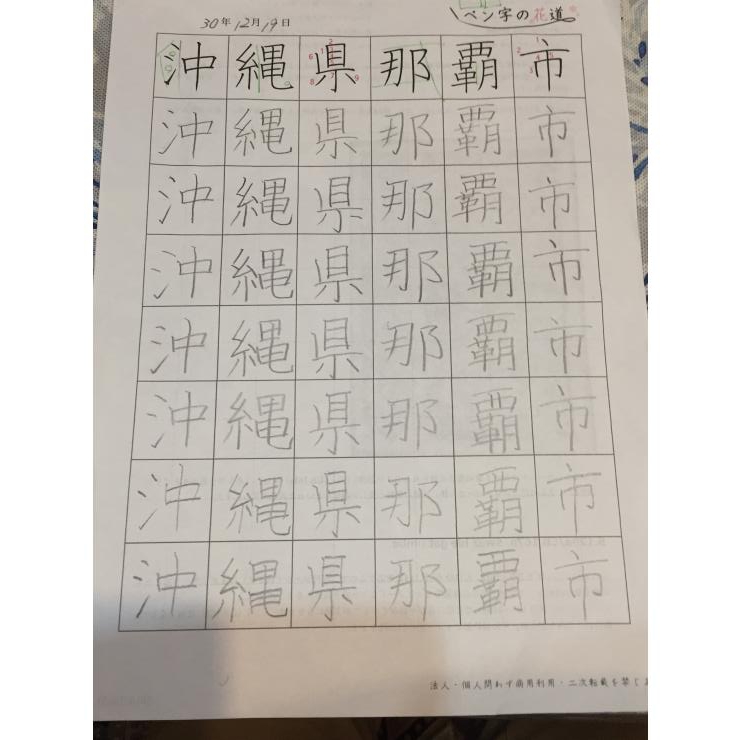 30年12月19日
ペン字の花道
沖縄県那覇市
沖縄県那覇市
沖縄県那覇市
沖縄県那覇市
沖縄県那覇市
沖縄県那覇市
沖縄県那覇市
沖縄県那覇市
法人・個人問わず商用利用・二次転載を禁じ